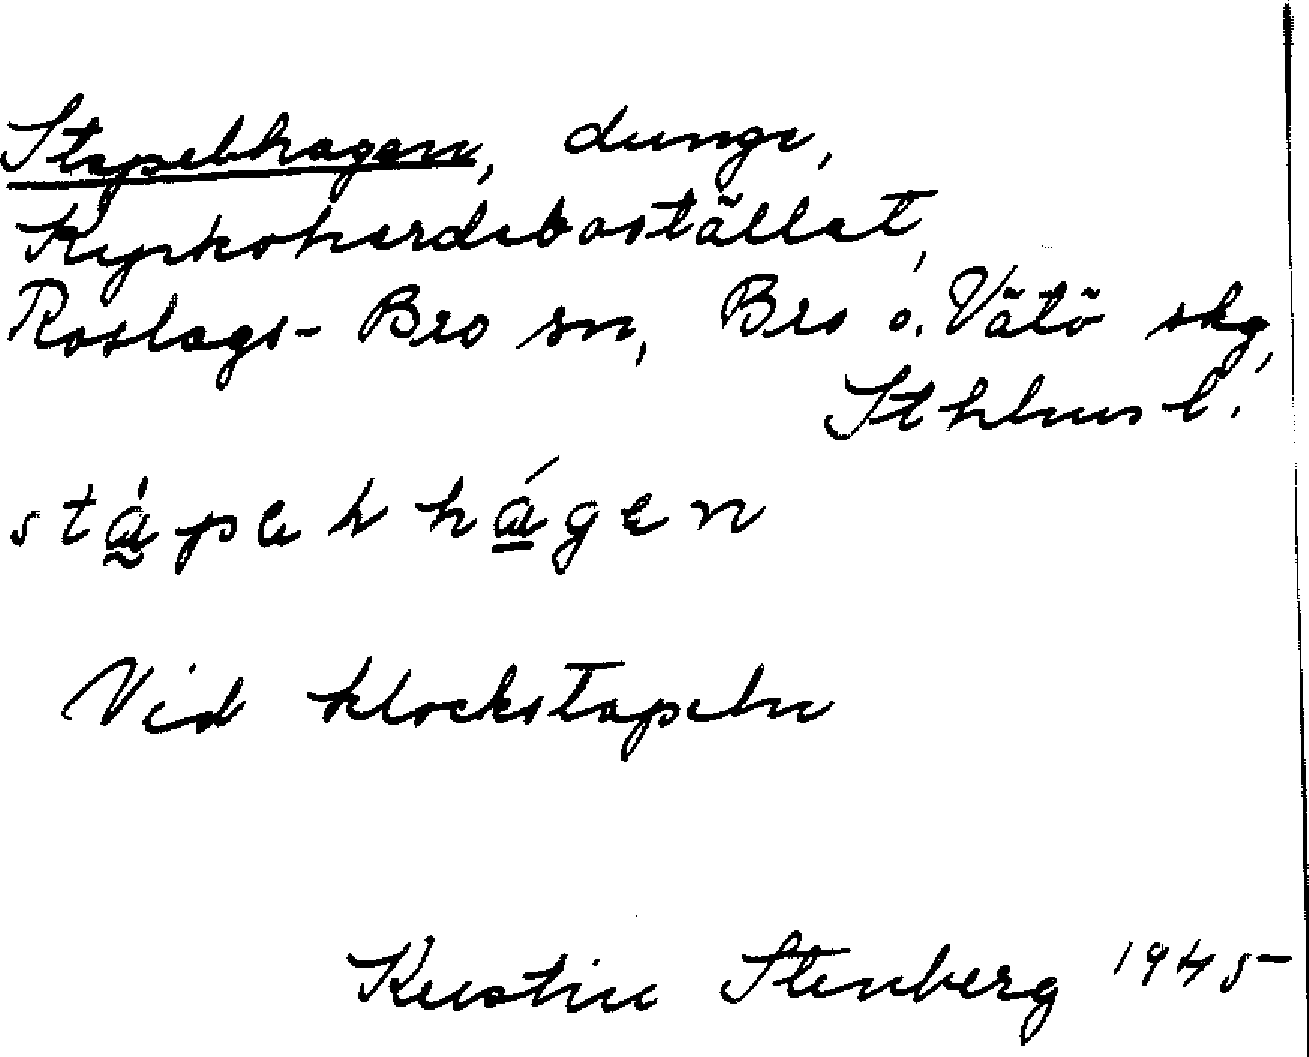 Stapelhagen, dunge,
Kyrkoherdebostället,
Roslags-Bro sn, Bro o. Vätö skg,
Sthlms l.
stápel hágen
Vid klockstapeln
Kerstin Stenberg 1945